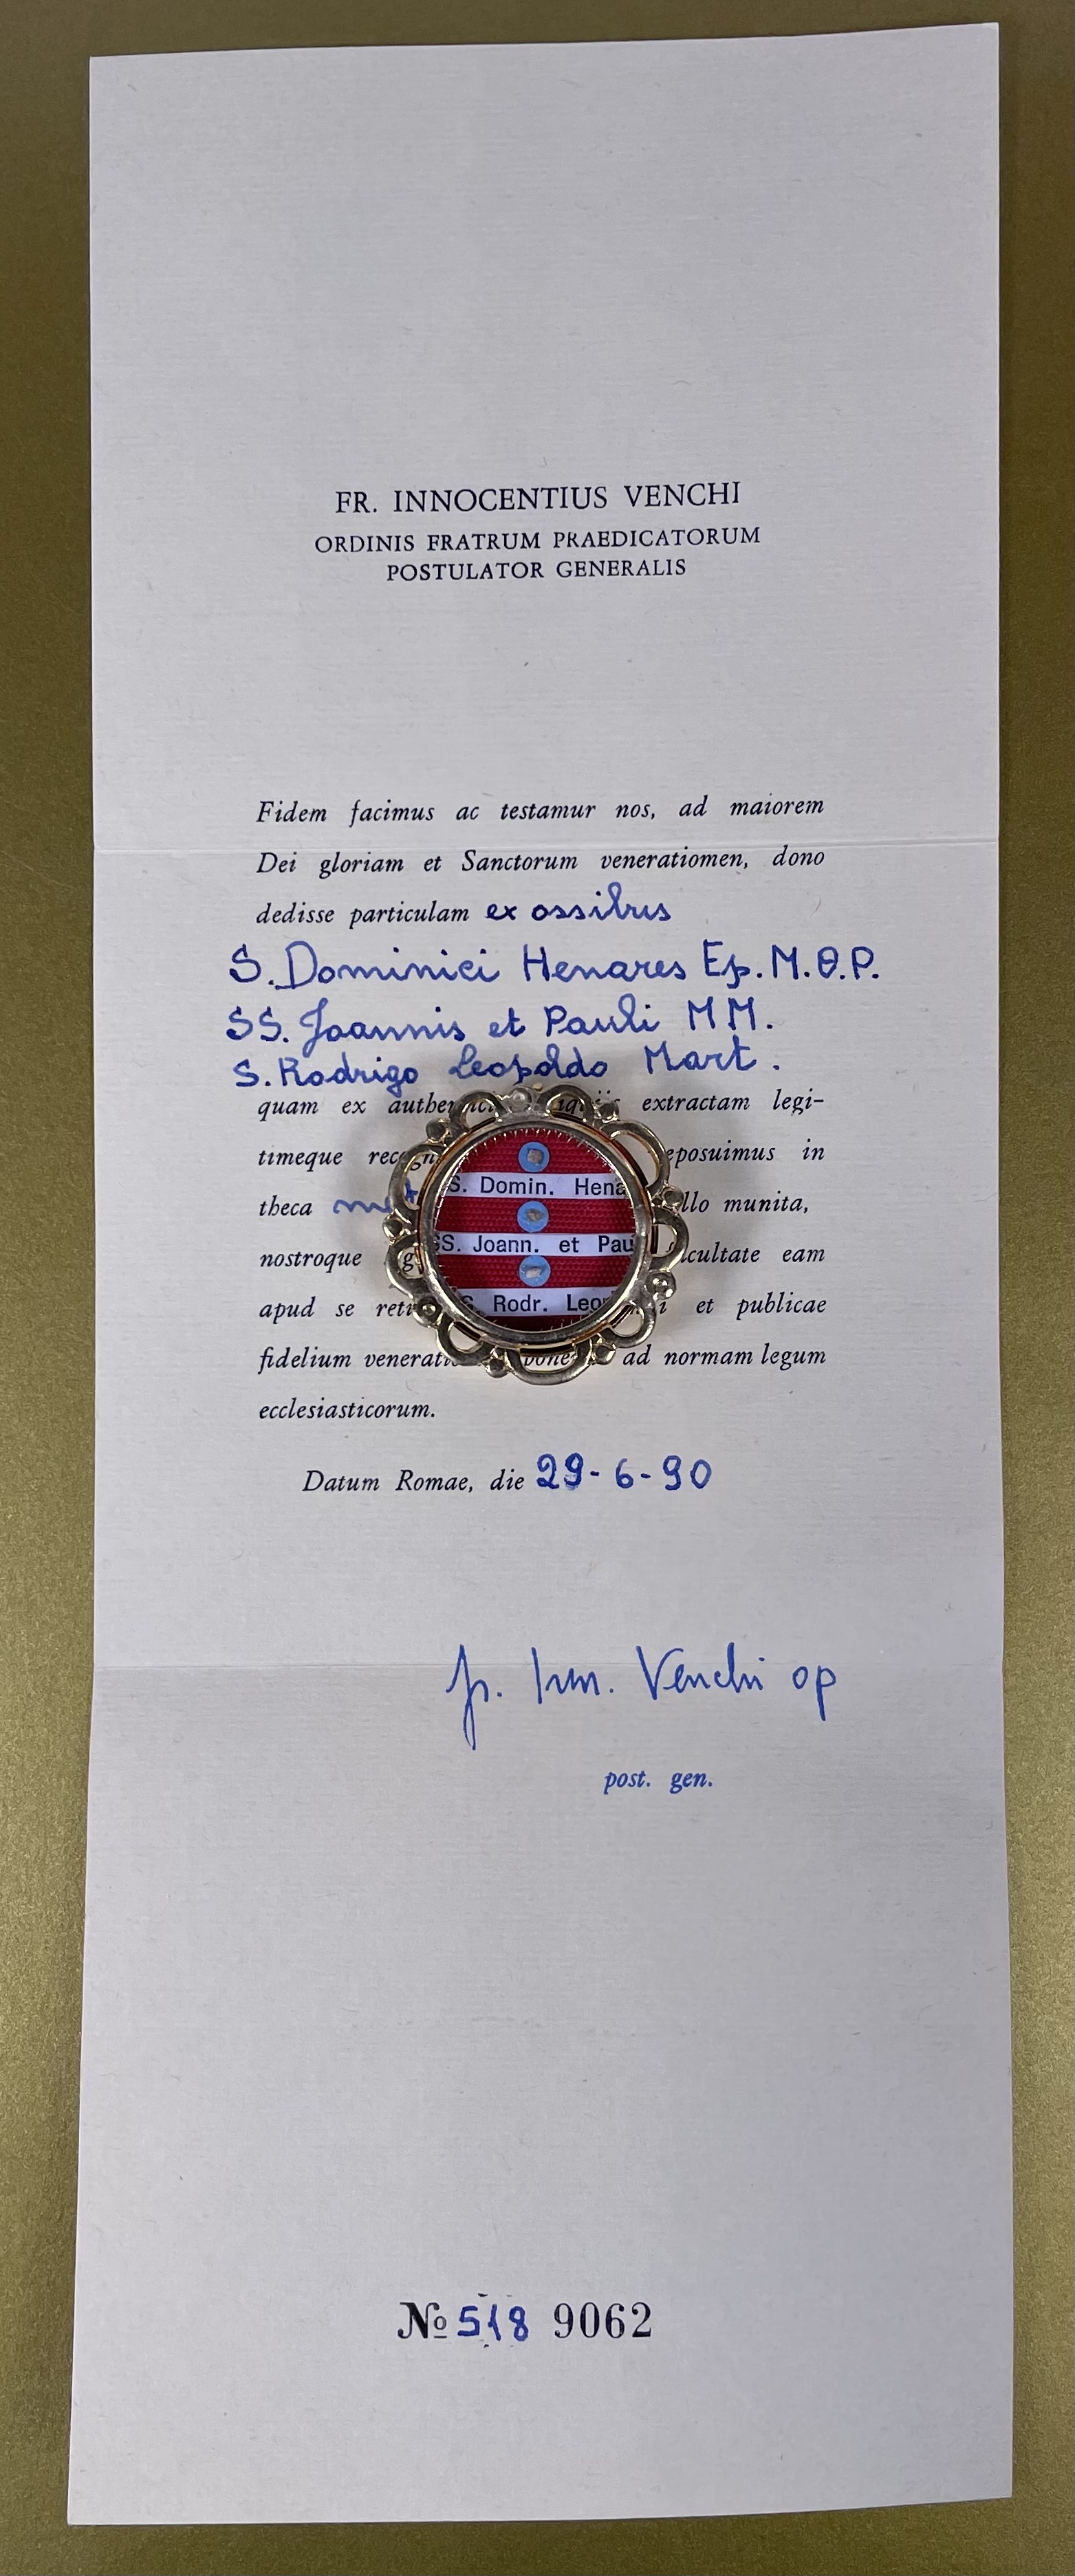 FR. INNOCENTIUS VENCHI
ORDINIS FRATRUM PRAEDICATORUM
POSTULATOR GENERALIS
Fidem facimus ac testamur nos, ad maiorem
Dei gloriam et Sanctorum veneratiomen, dono
dedisse particulam ex ossibus
S. Dominici Henares Ep. M. O.P.
SS. Joannis et Pauli MM.
S. Rodrigo Leopoldo Mart.
quam ex extractam legi-
timeque in
theca munita,
nostroque eam
apud se et publicae
fidelium ad normam legum
ecclesiasticorum.
S. Domin. Hena
SS. Joann. et Pau
S. Rodr. Leop
Datum Romae, die 29-6-90
fr. Inn. Venchi op
post. gen.
No 518 9062